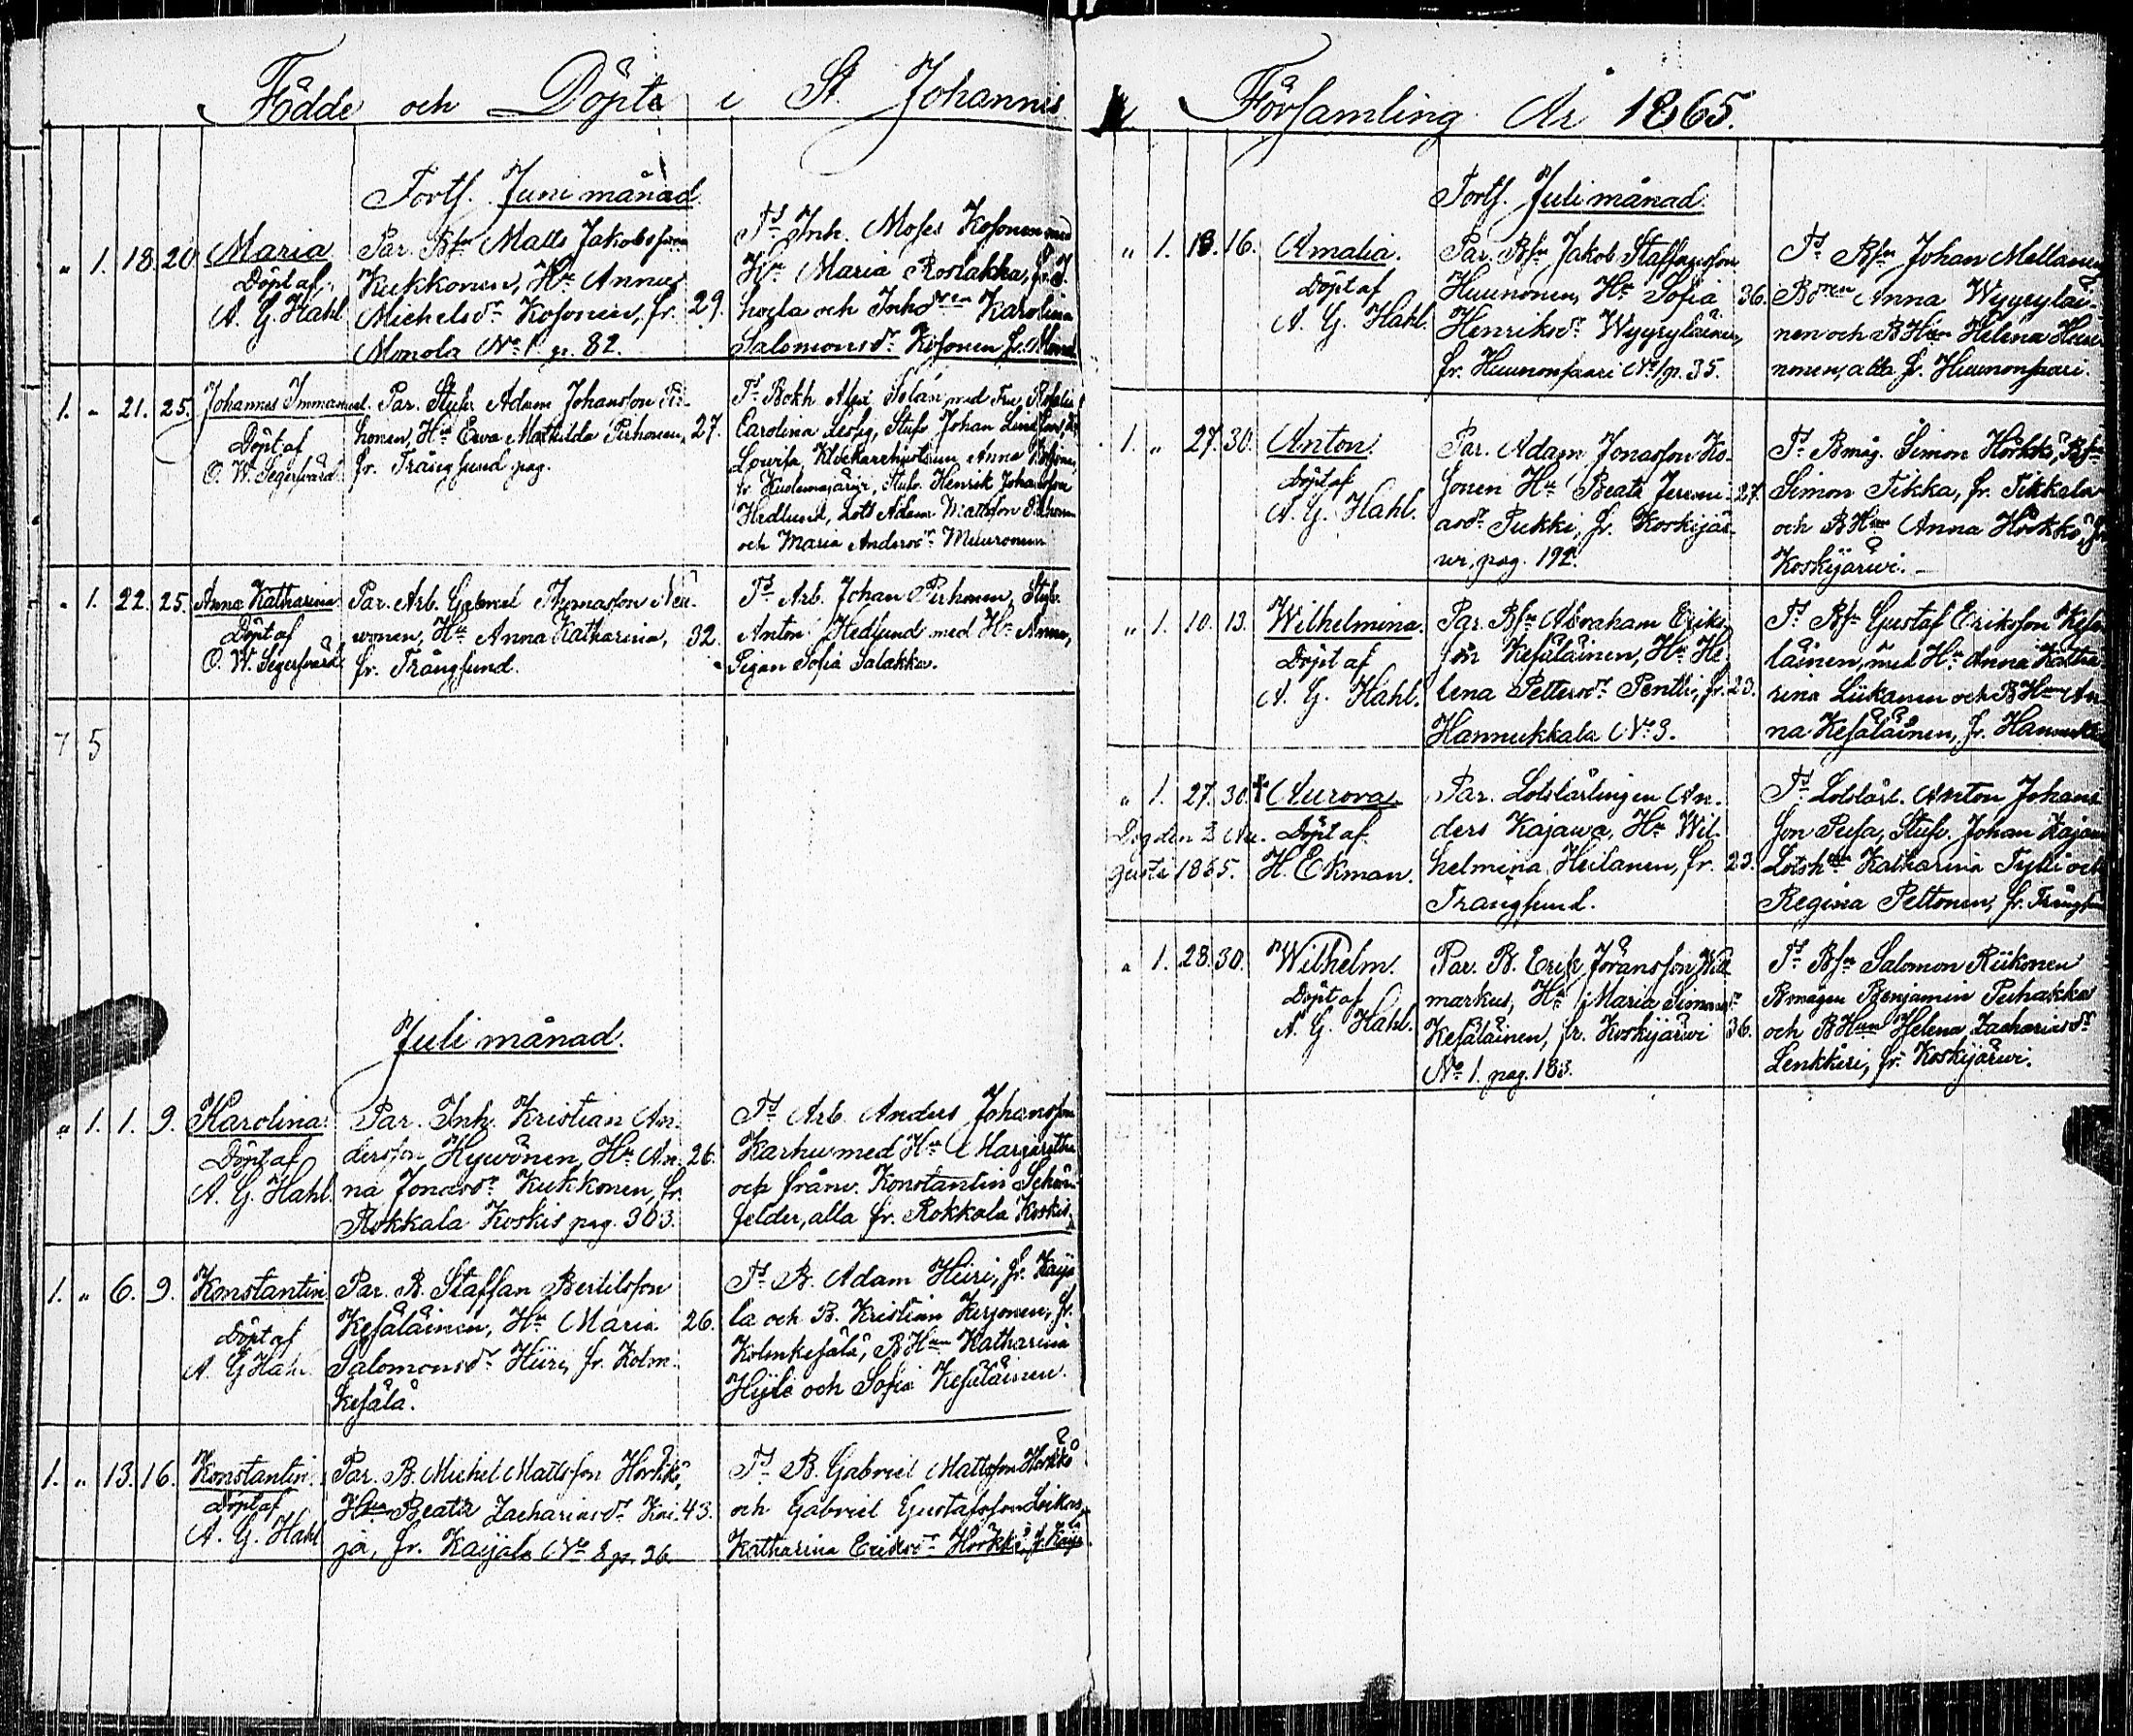 Födde och Döpte i St. Johannis
Forts. Juni månad.
" 1. 18. 20. Maria
Döpt af
A. G. Hahl
Par. Bsn Matts Jakobsson
Kukkonen, Hu Anna
Michelsdr Kosonen, fr. 29.
Monola No 1 p. 82.
Ts Inh. Moses Kosonen med
Hu Maria Roslakka,
och Inhdren Karolina
Salomonsdr Kosonen fr.
1. " 21. 25. Johannes Immanuel.
Döpt af
O. W. Segersvärd.
Par. Stufv Adam Johansson
Hu Ewa Mathilda Pirhonen, 27.
fr. Trångsund pag.
Ts Bokh. med Fru
Carolina Stufv Johan
Lovisa, Anna
fr. Kuolemajärvi, Stufv. Henrik Johansson
Hedlund, Lots Adam Mattsson Pirhonen
och Maria Andersdr Muuronen
" 1. 22. 25. Anna Katharina
Döpt af
O. W. Segersvärd
Par. Arb. Gabriel Thomasson
Hu Anna Katharina, 32.
fr. Trångsund.
Ts Arb. Johan Pirhonen, Stufv.
Anton Hedlund med Hu Anna,
Pigan Sofia Salakka.
7 5
Juli månad.
" 1. 1. 9. Karolina
Döpt af
A. G. Hahl.
Par. Inh. Kristian An-
dersson Hywönen, Hu An- 26.
na Jonasdr Kukkonen, fr.
Rokkala Koskis pag. 303.
Ts Arb. Anders Johansson
Karhu med Hu Margaretha
och Konstantin Schön-
felder, alla fr. Rokkala Koskis.
1. " 6. 9. Konstantin
Döpt af
A. G. Hahl.
Par. B. Staffan Bertilsson
Kesäläinen, Hu Maria 26.
Salomonsdr Hiiri, fr. Kolm-
kesälä.
Ts B. Adam Hiiri, fr. Kaija-
la och B. Kristian Kirjonen, fr.
Kolmkesälä, BHun Katharina
och Sofia Kesäläinen.
1. " 13. 16. Konstantin.
Döpt af
A. G. Hahl
Par. B. Michel Mattsson Hörkkö,
Hun Beata Zachariasdr Kai- 43.
ja, fr. Kaijala No 8 p. 26.
Ts B. Gabriel Mattsson Hörkkö
och Gabriel Gustafsson
Katharina Eriksdr Hörkkö, fr. Kaija
Församling År 1865.
Forts. Juli månad.
" 1. 13. 16. Amalia.
Döpt af
A. G. Hahl.
Par. Bsn Jakob Staffansson
Huunonen, Hu Sofia 36.
Henriksdr Wyyryläinen,
fr. Huunonsaari No 1 p. 35.
Ts Bsn Johan Mellanen
Bdren Anna Wyyryläi-
nen och BHun Helena Huu-
nonen, alla fr. Huunonsaari.
1. " 27. 30. Anton.
Döpt af
A. G. Hahl.
Par. Adam Jonasson Ko-
sonen Hu Beata Jeremi- 27.
asdr Pukki, fr. Koskijär-
wi, pag. 192.
Ts Bmåg. Simon Hörkkö, Bsn
Simon Tikka, fr. Tikkala
och BHun Anna Hörkkö, fr.
Koskijärwi.
" 1. 10. 13. Wilhelmina.
Döpt af
A. G. Hahl.
Par. Bsn Abraham Eriks-
son Kesäläinen, Hu He-
lena Pettersdr Pentti, fr. 23.
Hannukkala No 3.
Ts Bsn Gustaf Eriksson Kesä-
läinen, med Hu Anna Katha-
rina Liikanen och BHun An-
na Kesäläinen, fr. Hannukkala
" 1. 27. 30. † Aurora.
Dog den 2 Au- Döpt af
gusti 1865. H. Ekman.
Par. Lotslärlingen An-
ders Kajawa, Hu Wil-
helmina Heilanen, fr. 23.
Trångsund.
Ts Lotslärl. Anton Johans-
son Pusa, Stufv. Johan Kajawa
Lotshun Katharina Tylli och
Regina Peltonen, fr. Trångsund
" 1. 28. 30. Wilhelm.
Döpt af
A. G. Hahl.
Par. B. Erik Göransson Wil-
markus, Hu Maria Simonsdr
Kesäläinen, fr. Koskijärwi 36.
No 1. pag. 183.
Ts Bsn Salomon Riikonen
Bmågen Benjamin Puhakka
och BHun Helena Zachariasdr
Lenkkeri, fr. Koskijärwi.